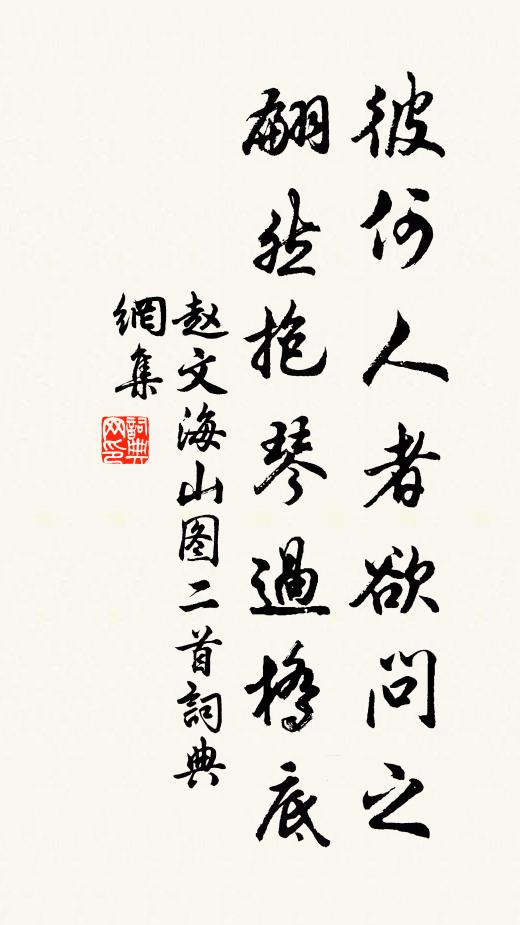 彼何人者欲问之
翩然抱琴過橋底
赵文海山图二首詞典
網集
詞典
网印